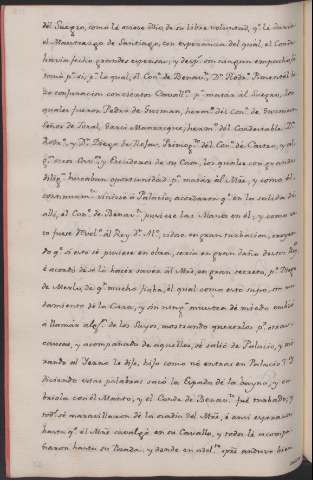 del Suegro, como le avia dho, de su libre voluntad, q.e le daria
el Maestrazgo de Santiago, con esperanza del qual, el Conde
havia fecho grandes espensas, y desp.s sin ningun empacho, la
tomó p.a si; p.r lo qual, el Con.e de Benav.te D.n Rodr.o Pimentel hi-
zo conjuracion con ciertos Cavall.s p.a matar al Suegro, los
quales fueron Pedro de Guzman, herm.o del Con.e de
Señor de Toral, Garci Manrrique, herm.o del Condestable D.n
Rodr.o, y D.n Diego de Rojas, Primog.o del Con.e de Castro, y al-
g.s otros y Escuderos de su Casa, los quales con grande
dilig.a buscaban oportunidad p.a matar al Mre, y como él
continuam.te viniese á Palacio, acordaron q.e en la salida de
alli, el Con.e de Benav.te pusiese las Manos en él, y como es-
to fuese al Rey D.n Al.o, estubo en gran turbacion, creyen-
do q.e si esto se pusiese en obra, seria en gran daño de
é acordó de se lo hacer saver al Mre, en gran secreto, p.r Diego
de Merlo, de q.n mucho fiaba, el qual como esto supo, sin mu-
damiento de la Cara, y sin ning.a muestra de miedo embió
á llamár alg.s de los Suyos, mostrando quererlos p.a otras
causas, y acompañado de aquellos, se salió de Palacio, y mi-
rando al Yerno le dijo, hijo como no entras en Palacio? Y
diciendo estas palabras sacó la Espada de la bayna, y en-
bolviola con el Manto, y el Conde de Benav.te fue turbado, y
tod.s se maravillaron de la osadia del Mre, é ansi esperaron
hasta q.e el Mre cavalgó en su Cavallo, y todos le acompa-
ñaron hasta su Posada, y donde en adel.te anduvo bien